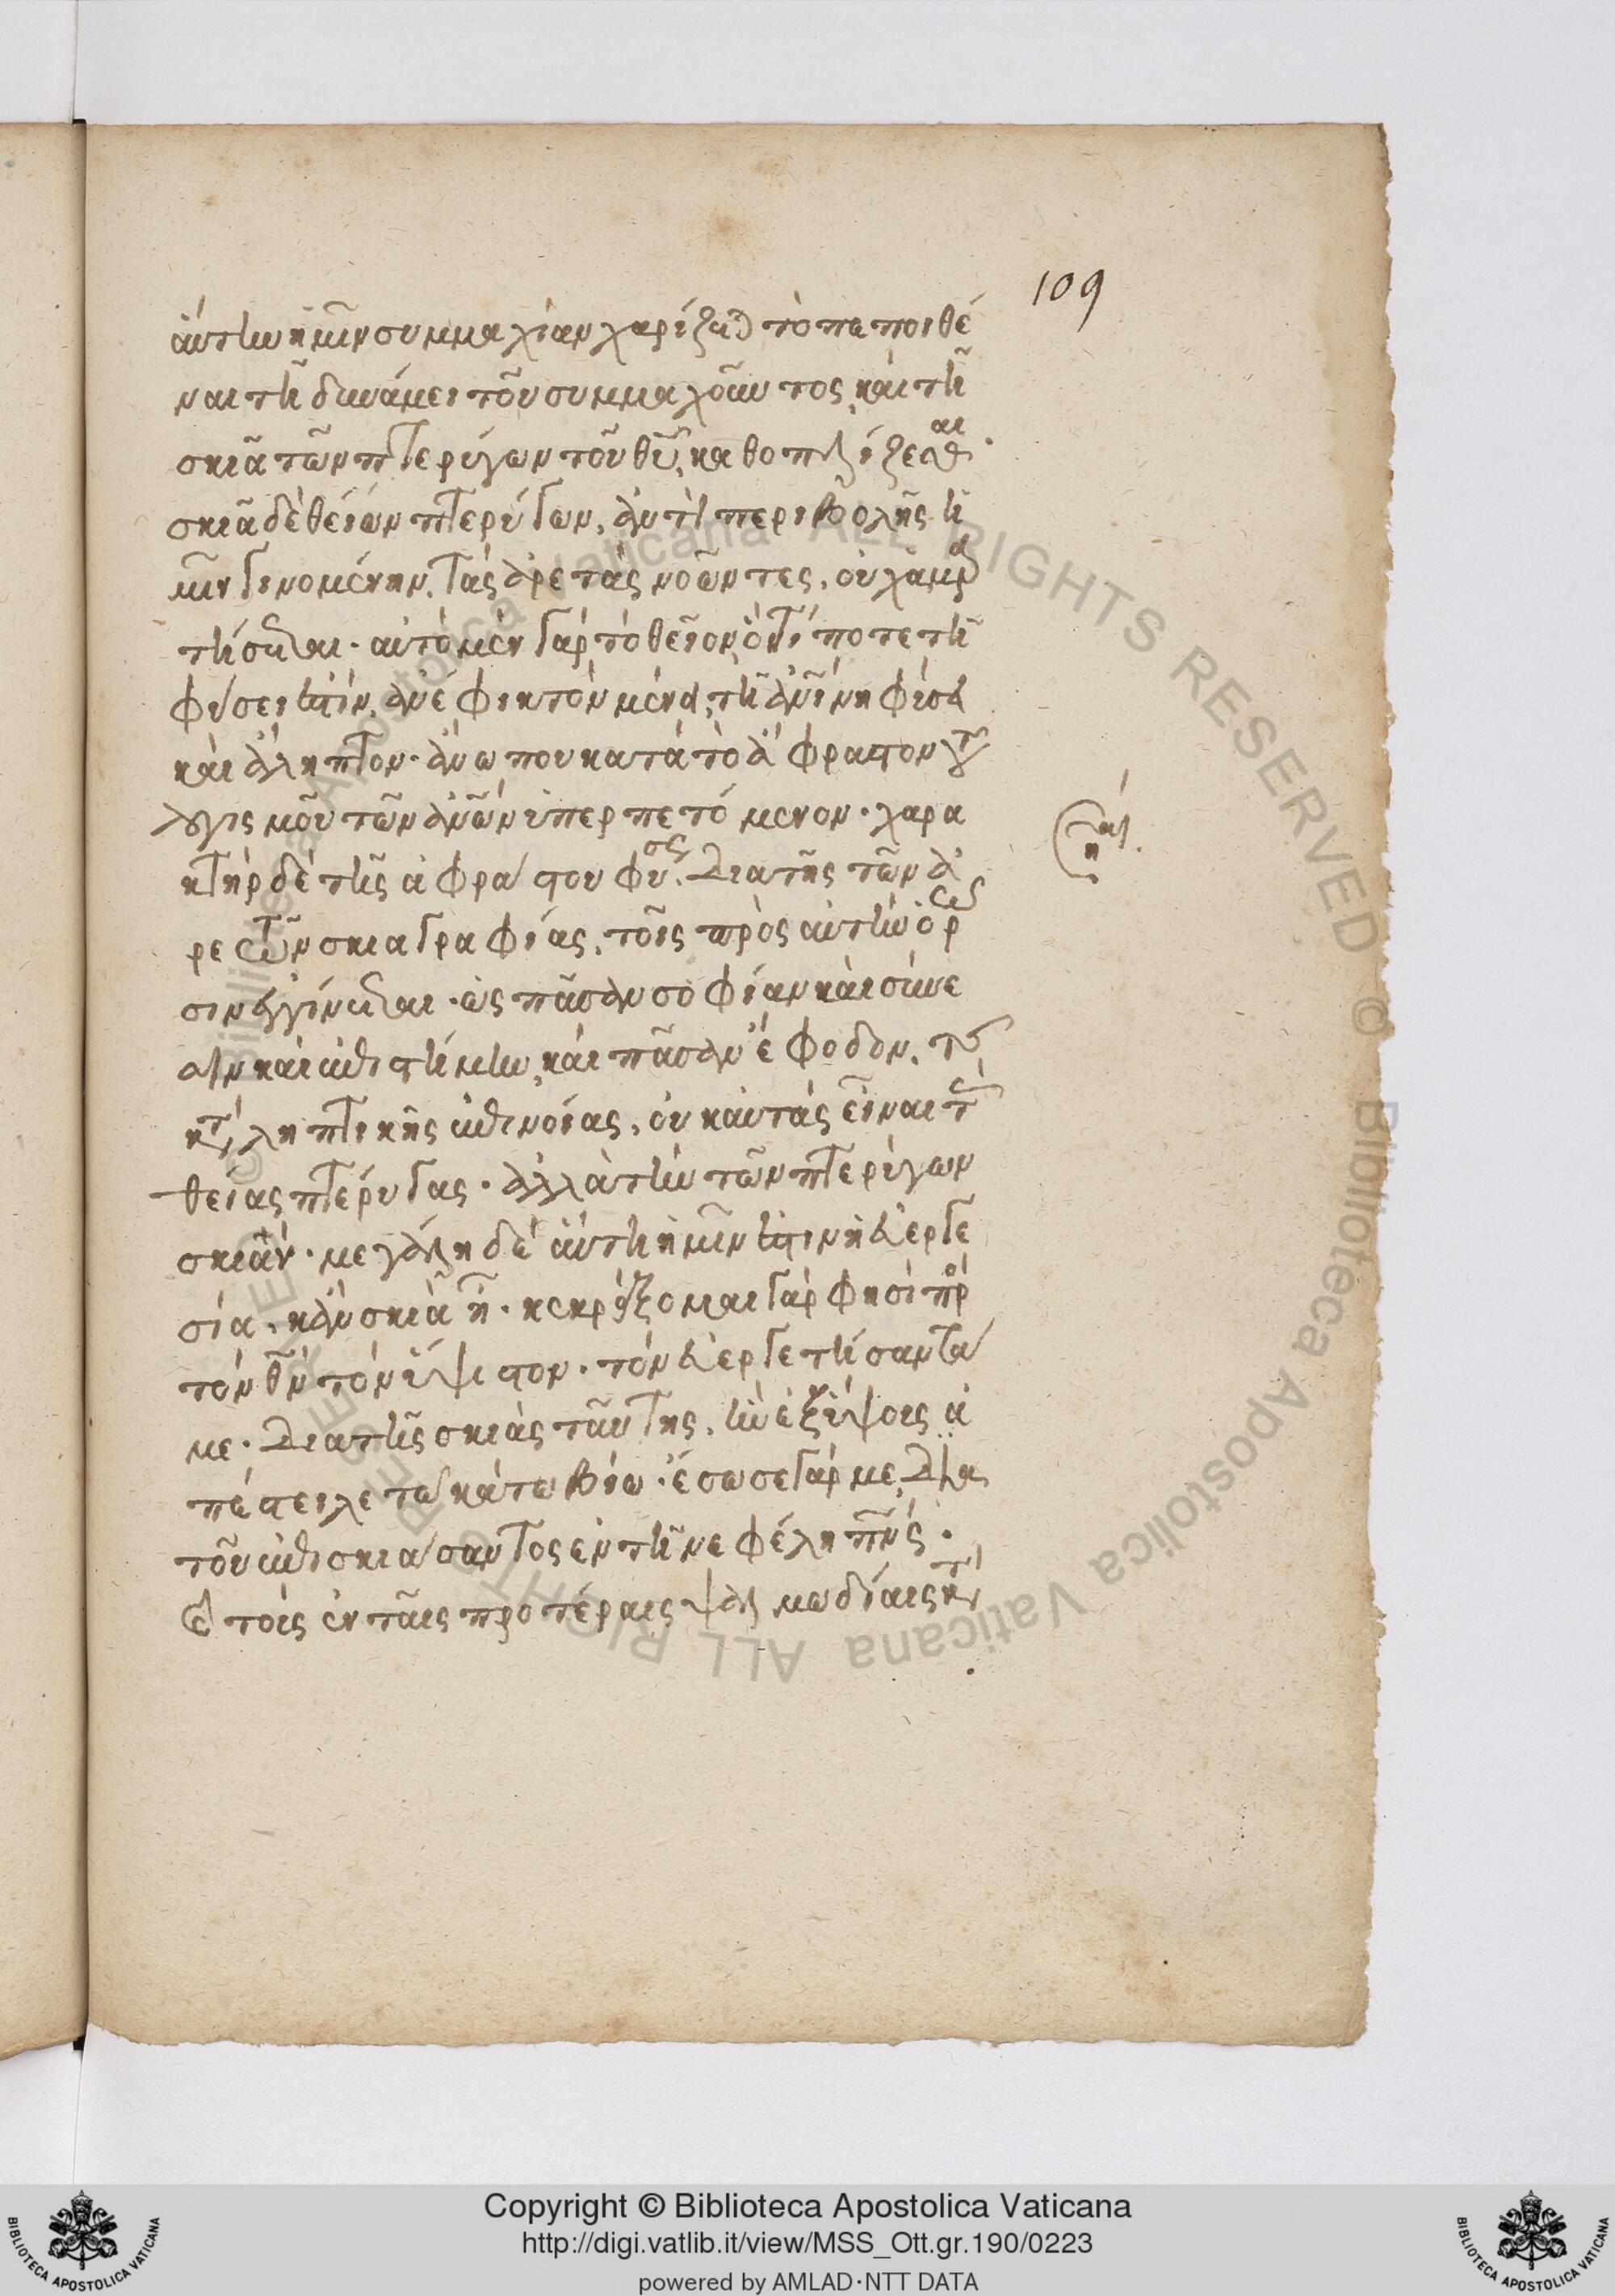 109
αὐτὴν ἡμῖν συμμαχίαν χαρίζεται τὸ πεποιθέ
ναι τῇ δυνάμει τοῦ συμμαχοῦντος, καὶ τῇ
σκιᾷ τῶν πτερύγων τοῦ θυ, καθοπλίζεσθαι.
σκιᾷ δὲ θείων πτερύγων, ἀντὶ περιβολῆς ἡ
μῖν γινομένην, τὰς ἀρετὰς νοῶντες, οὐχ ἁμαρ
τήσεσθαι. αὐτὸ μὲν γὰρ τὸ θεῖον, ὅτί ποτε τῇ
φύσει ἐστὶν, ἀνέφικτον μένει, τῇ ἀνίνη φύσει
καὶ ἄληπτον. ἄνω που κατὰ τὸ ἄφραστον τῶν
λογισμοῦ τῶν ἀνων ὑπερπετόμενον. χαρα
κτὴρ δέ τις ἀφράστου φύσεως, διὰ τῆς τῶν ἀ
ρετῶν σκιαγραφίας, τοῖς πρὸς αὐτὴν ὁρῶ
σιν ἐγγίνεται. ὡς πᾶσαν σοφίαν καὶ σύνε
σιν καὶ ἐπιστήμην, καὶ πᾶσαν ἔφοδον, τῆς
καταληπτικῆς ἐπινοίας, οὐκ αὐτὰς εἶναι τὰς
θείας πτέρυγας. ἀλλὰ τὴν τῶν πτερύγων
σκιάν. μεγάλη δὲ αὐτὴ ἡμῖν ἐστιν ἡ εὐεργε
σία, κἂν σκιὰ ᾖ. κεκράξομαι γάρ φησι πρὸς
τὸν θν τὸν ὕψιστον. τὸν εὐεργετήσαντά
με. διὰ τῆς σκιᾶς ταύτης, ἣν ἐξ ὕψους ἀ
πέστειλε τῷ κάτω βίῳ. ἔσωσε γάρ με, διὰ
τοῦ ἐπισκιάσαντος ἐν τῇ νεφέλῃ πνς.
ὁ τοῖς ἐν ταῖς προτέραις ψαλμωδίαις κατ
Copyright © Biblioteca Apostolica Vaticana
http://digi.vatlib.it/view/MSS_Ott.gr.190/0223
powered by AMLAD·NTT DATA
BIBLIOTECA APOSTOLICA VATICANA
BIBLIOTECA APOSTOLICA VATICANA
© Biblioteca Apostolica Vaticana ALL RIGHTS RESERVED